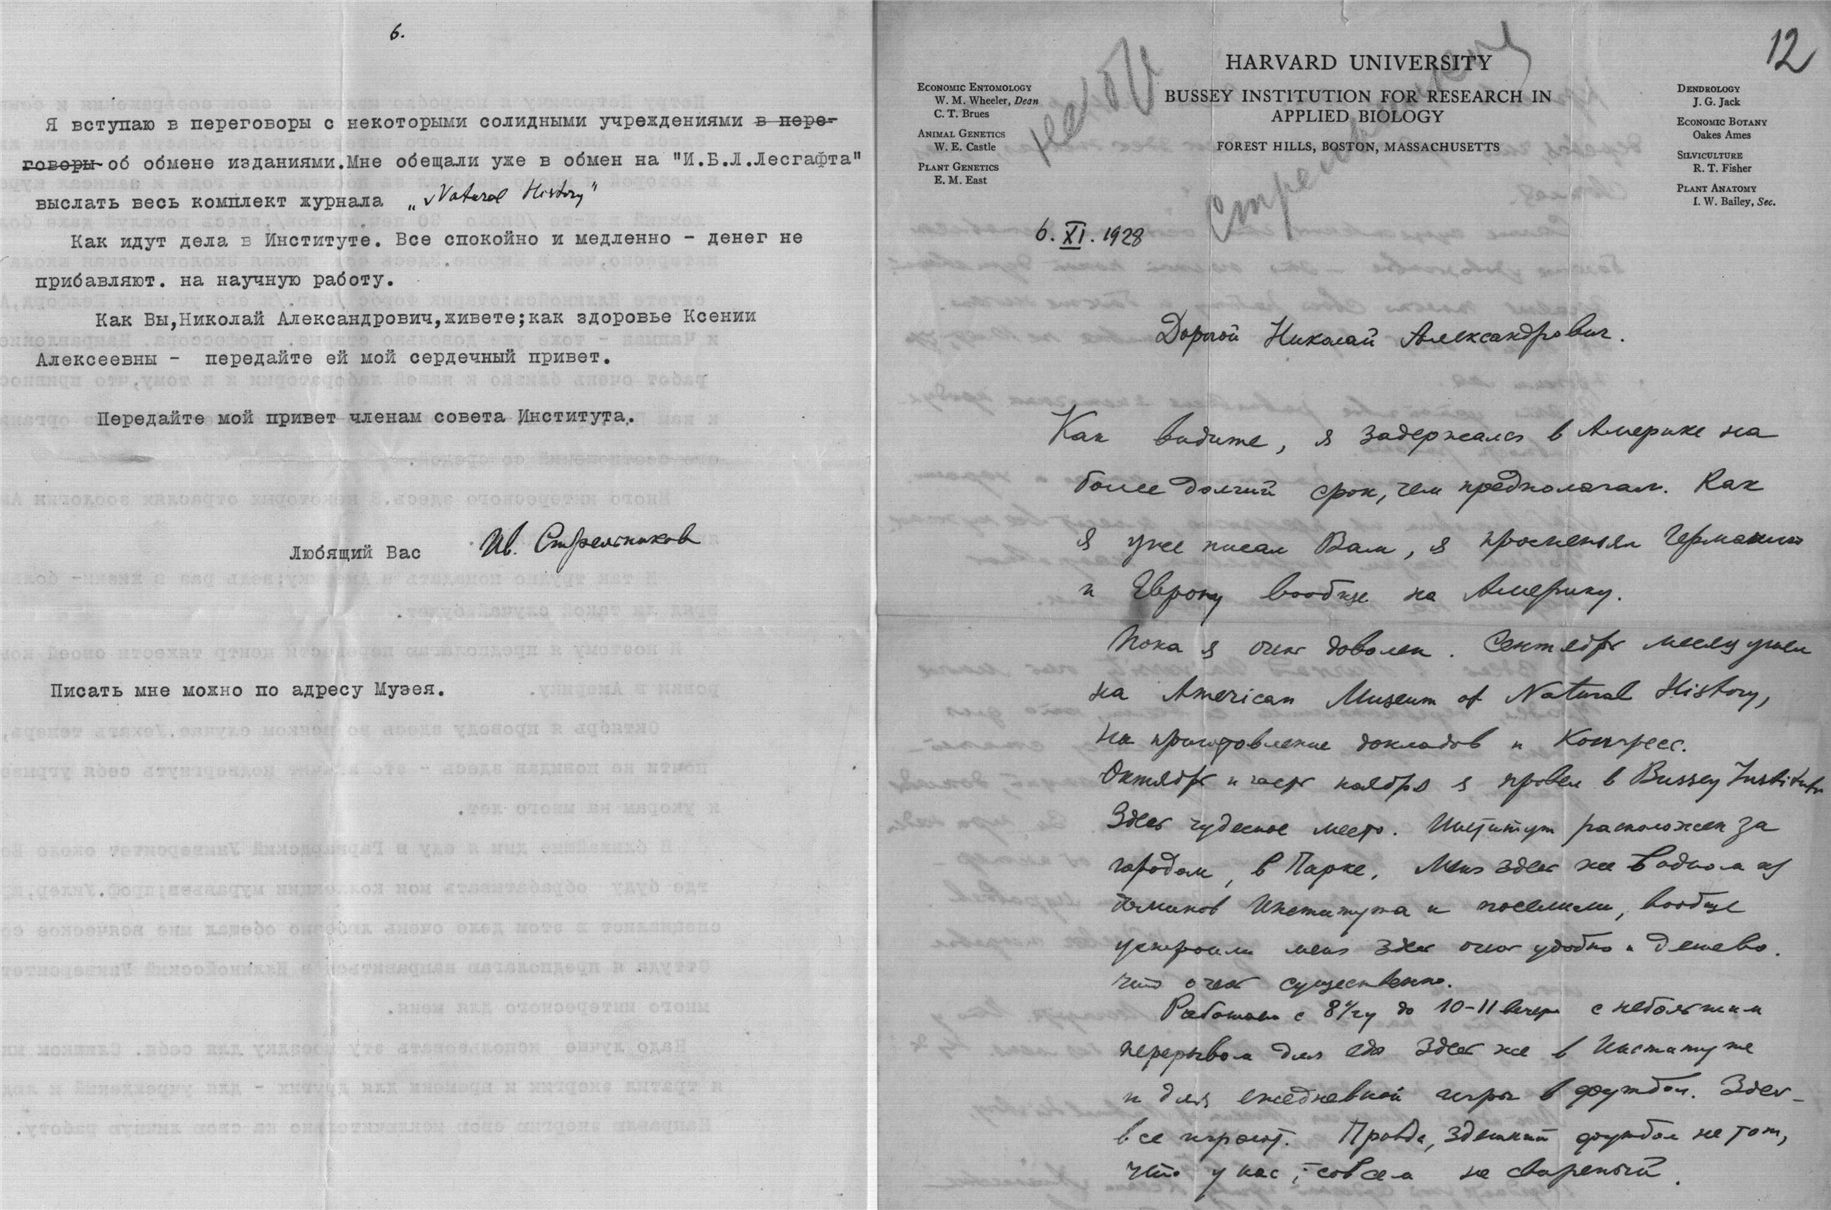 6.
Я вступаю в переговоры с некоторыми солидными учреждениями в пере-
говоры об обмене изданиями.Мне обещали уже в обмен на "И.Б.Л.Лесгафта"
выслать весь комплект журнала „Natural History"
Как идут дела в Институте. Все спокойно и медленно - денег не
прибавляют. на научную работу.
Как Вы,Николай Александрович,живете;как здоровье Ксении
Алексеевны - передайте ей мой сердечный привет.
Передайте мой привет членам совета Института.
Любящий Вас Ив. Стрельников
Писать мне можно по адресу Музея.
12
HARVARD UNIVERSITY
BUSSEY INSTITUTION FOR RESEARCH IN
APPLIED BIOLOGY
FOREST HILLS, BOSTON, MASSACHUSETTS
ECONOMIC ENTOMOLOGY
W. M. Wheeler, Dean
C. T. Brues
ANIMAL GENETICS
W. E. Castle
PLANT GENETICS
E. M. East
DENDROLOGY
J. G. Jack
ECONOMIC BOTANY
Oakes Ames
SILVICULTURE
R. T. Fisher
PLANT ANATOMY
I. W. Bailey, Sec.
6. XI. 1928
Дорогой Николай Александрович.
Как видите, я задержался в Америке на
более долгий срок, чем предполагал. Как
я уже писал Вам, я променял Германию
и Европу вообще на Америку.
Пока я очень доволен. Сентябрь месяц ушел
на American Museum of Natural History,
на приготовление докладов и Конгресс.
Октябрь и часть ноября я провел в Bussey Institution
Здесь чудесное место. Институт расположен за
городом, в Парке. Меня здесь же в одном из
домиков Института и поселили, вообще
устроили меня здесь очень удобно и дешево.
что очень существенно.
Работаю с 8 утра до 10-11 вечера с небольшим
перерывом для еды здесь же в Институте
и для ежедневной игры в футбол. Здесь
все играют. Правда, здешний футбол не тот,
что у нас, совсем не свирепый.